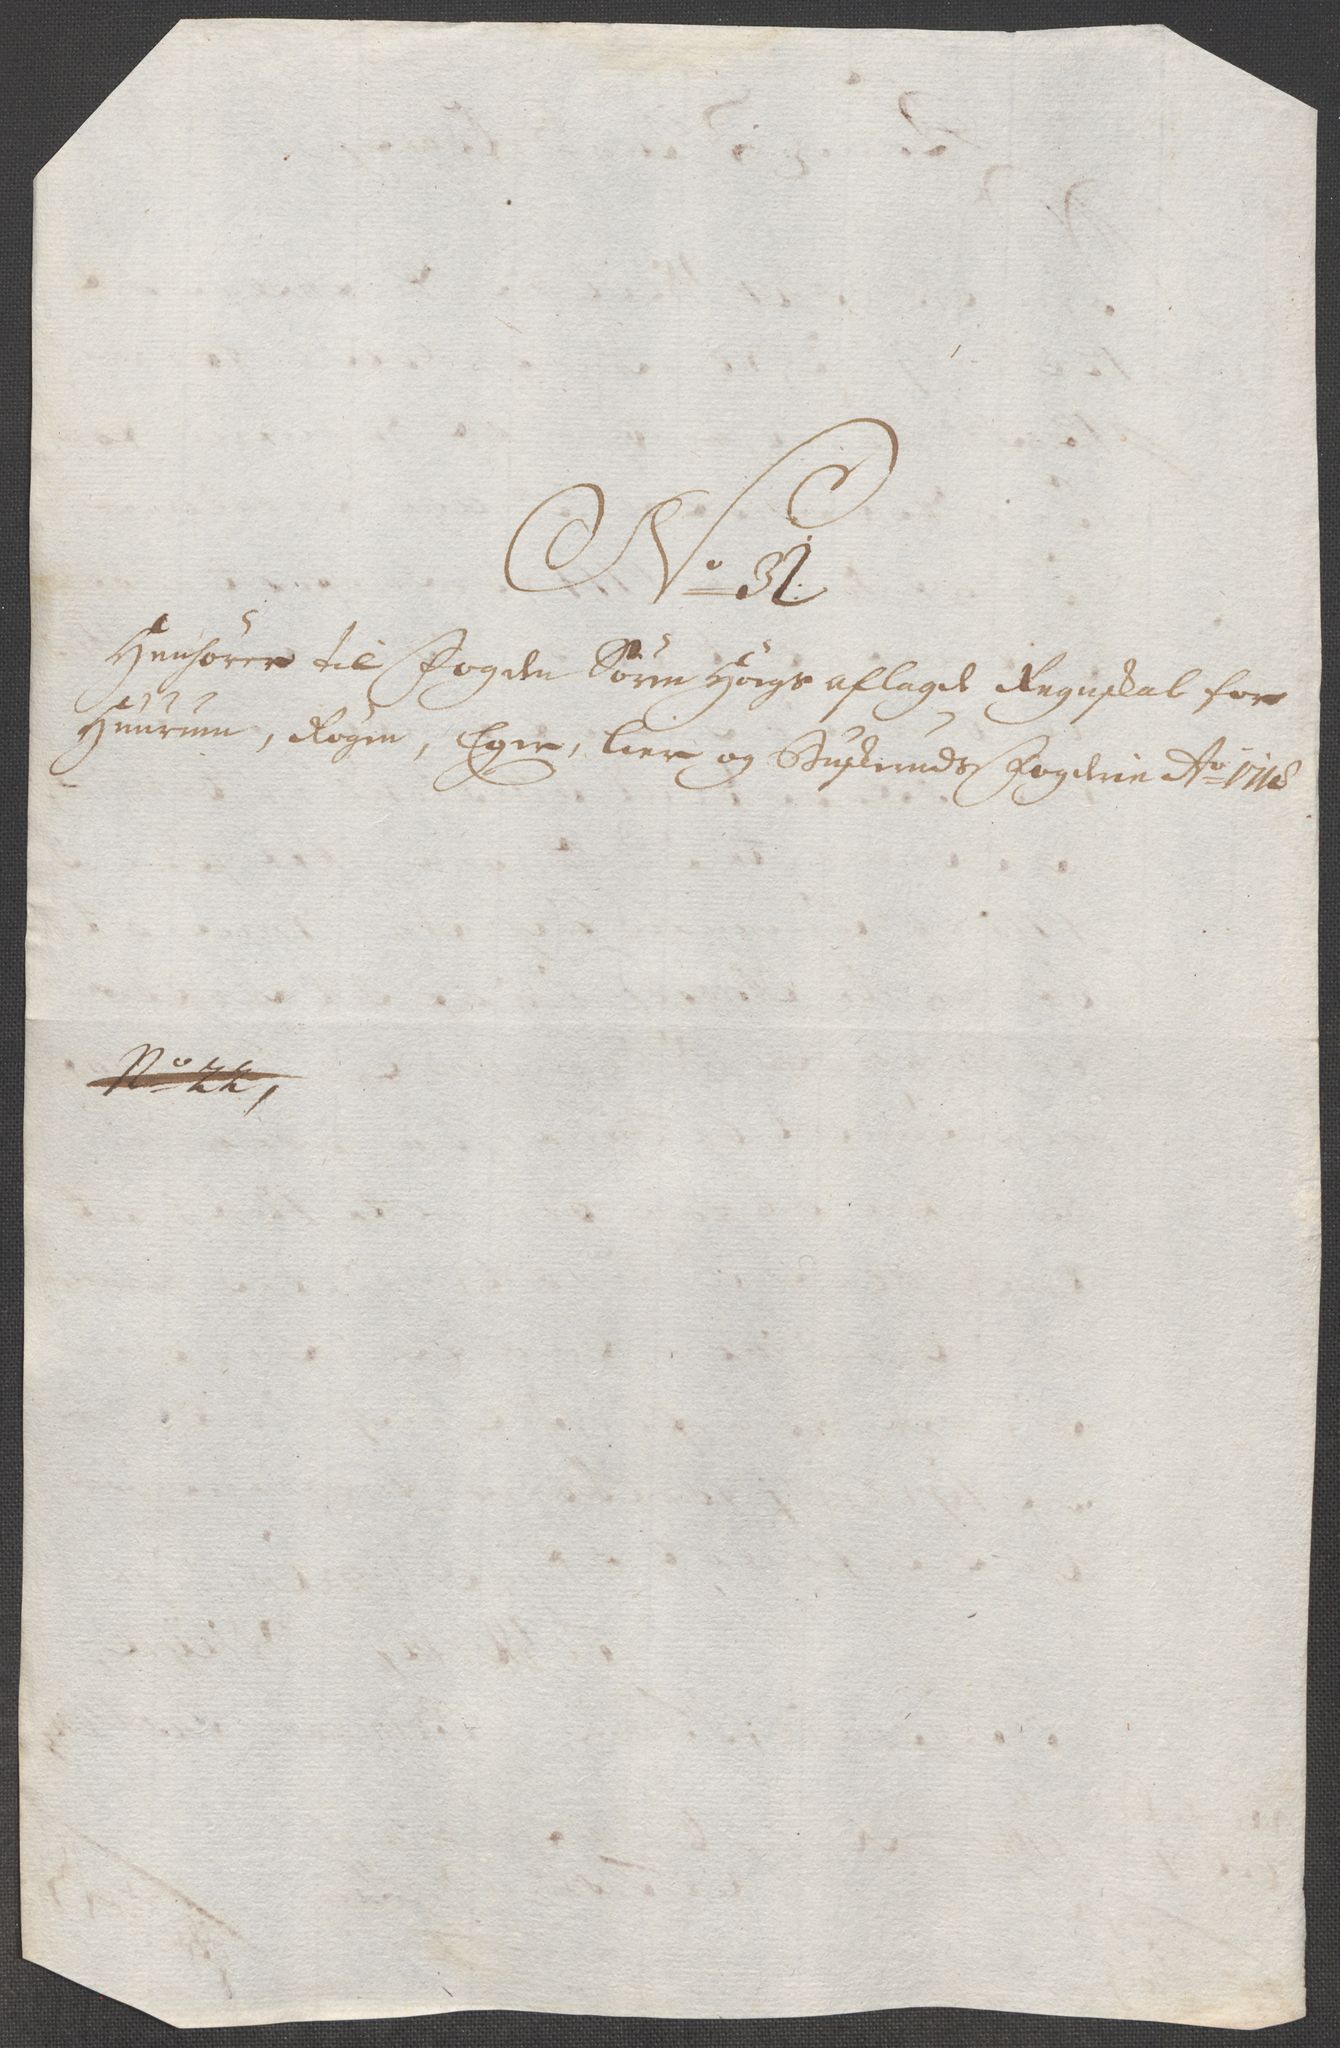 No 31
Henhører til Fogden Søren Høegs aflagde Regnskab for
Huurum, Røgen, Eger, Lier og Buskeruds Fogderie Ao 1718
No 22,